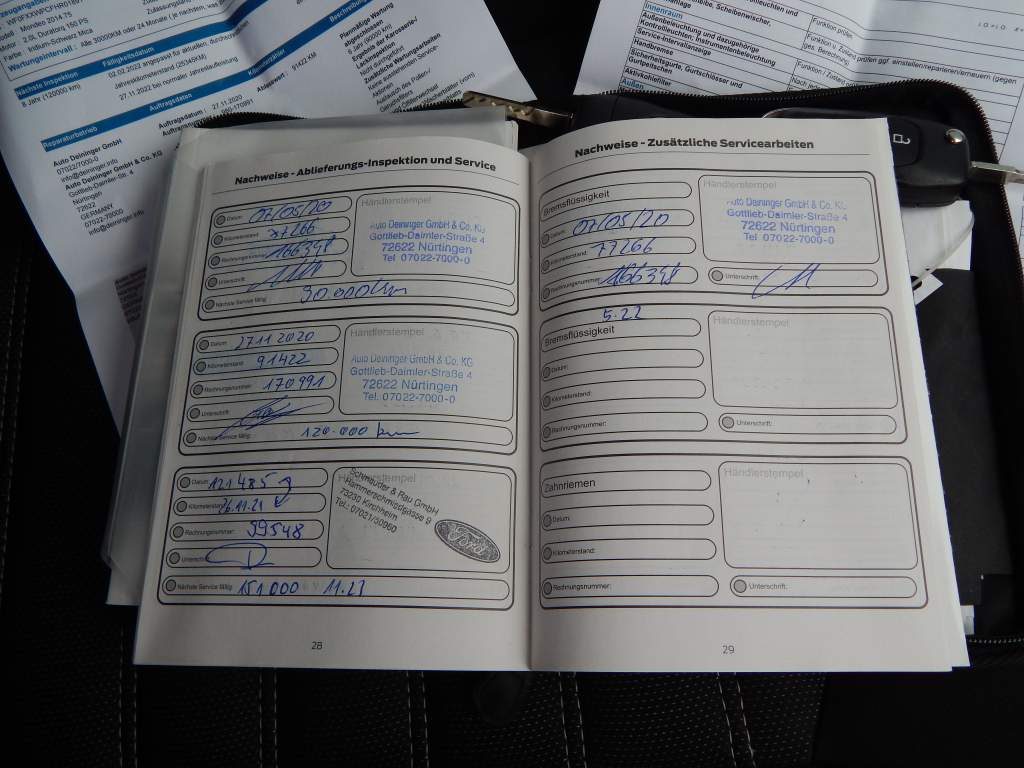 Mondeo 2014.75
2.0L Duratorq 150 PS
Iridium-Schwarz Mica
Wartungsintervall : Alle 30000KM oder 24 Monate
Nächste Inspektion
8 Jahr (120000 km)
Fälligkeitsdatum
02.02.2022 angepasst für aktuellen, durchschn.
Jahreskilometerstand (25345KM)
27.11.2022 bei normaler Jahreslaufleistung
Kilometerzähler
Auftragsdaten
Auftragsdatum : 27.11.2020
91422 KM
Reparaturbetrieb
Auto Deininger GmbH
07022/7000-0
info@deininger.info
Auto Deininger GmbH & Co. KG
Gottlieb-Daimler-Str. 4
Nürtingen
72622
GERMANY
07022-70000
info@deininger.info
Planmäßige Wartung
abgeschlossen
6 Jahr (90000 km)
Nicht durchgeführt
Zusätzliche Wartungsarbeiten
Innenraum
Außenbeleuchtung und dazugehörige
Kontrolleuchten; Instrumentenbeleuchtung
Service-Intervallanzeige
Handbremse
Sicherheitsgurte, Gurtschlösser und
Gurtpeitschen
Aktivkohlefilter
Außen
Funktion prüfen
Nachweise - Ablieferungs-Inspektion und Service
Datum: 07/05/20
Kilometerstand: 77266
Rechnungsnummer: 166348
Unterschrift:
Nächste Service fällig: 90.000km
Händlerstempel
Auto Deininger GmbH & Co. KG
Gottlieb-Daimler-Straße 4
72622 Nürtingen
Tel 07022-7000-0
Datum: 27 11 2020
Kilometerstand: 91422
Rechnungsnummer: 170991
Unterschrift:
Nächste Service fällig: 120.000 km
Händlerstempel
Auto Deininger GmbH & Co. KG
Gottlieb-Daimler-Straße 4
72622 Nürtingen
Tel. 07022-7000-0
Datum: 121485
Kilometerstand: 26.11.21
Rechnungsnummer: 99548
Unterschrift:
Nächste Service fällig: 151000 11.23
Händlerstempel
Schmauder & Rau GmbH
Hammerschmidgasse 9
73230 Kirchheim
Tel.: 07021/50960
Ford
28
Nachweise - Zusätzliche Servicearbeiten
Bremsflüssigkeit
Datum: 07/05/20
Kilometerstand: 77266
Rechnungsnummer: 166348
Händlerstempel
Auto Deininger GmbH & Co. KG
Gottlieb-Daimler-Straße 4
72622 Nürtingen
Tel 07022-7000-0
Unterschrift:
5.22
Bremsflüssigkeit
Datum:
Kilometerstand:
Rechnungsnummer:
Händlerstempel
Unterschrift:
Zahnriemen
Datum:
Kilometerstand:
Rechnungsnummer:
Händlerstempel
Unterschrift:
29